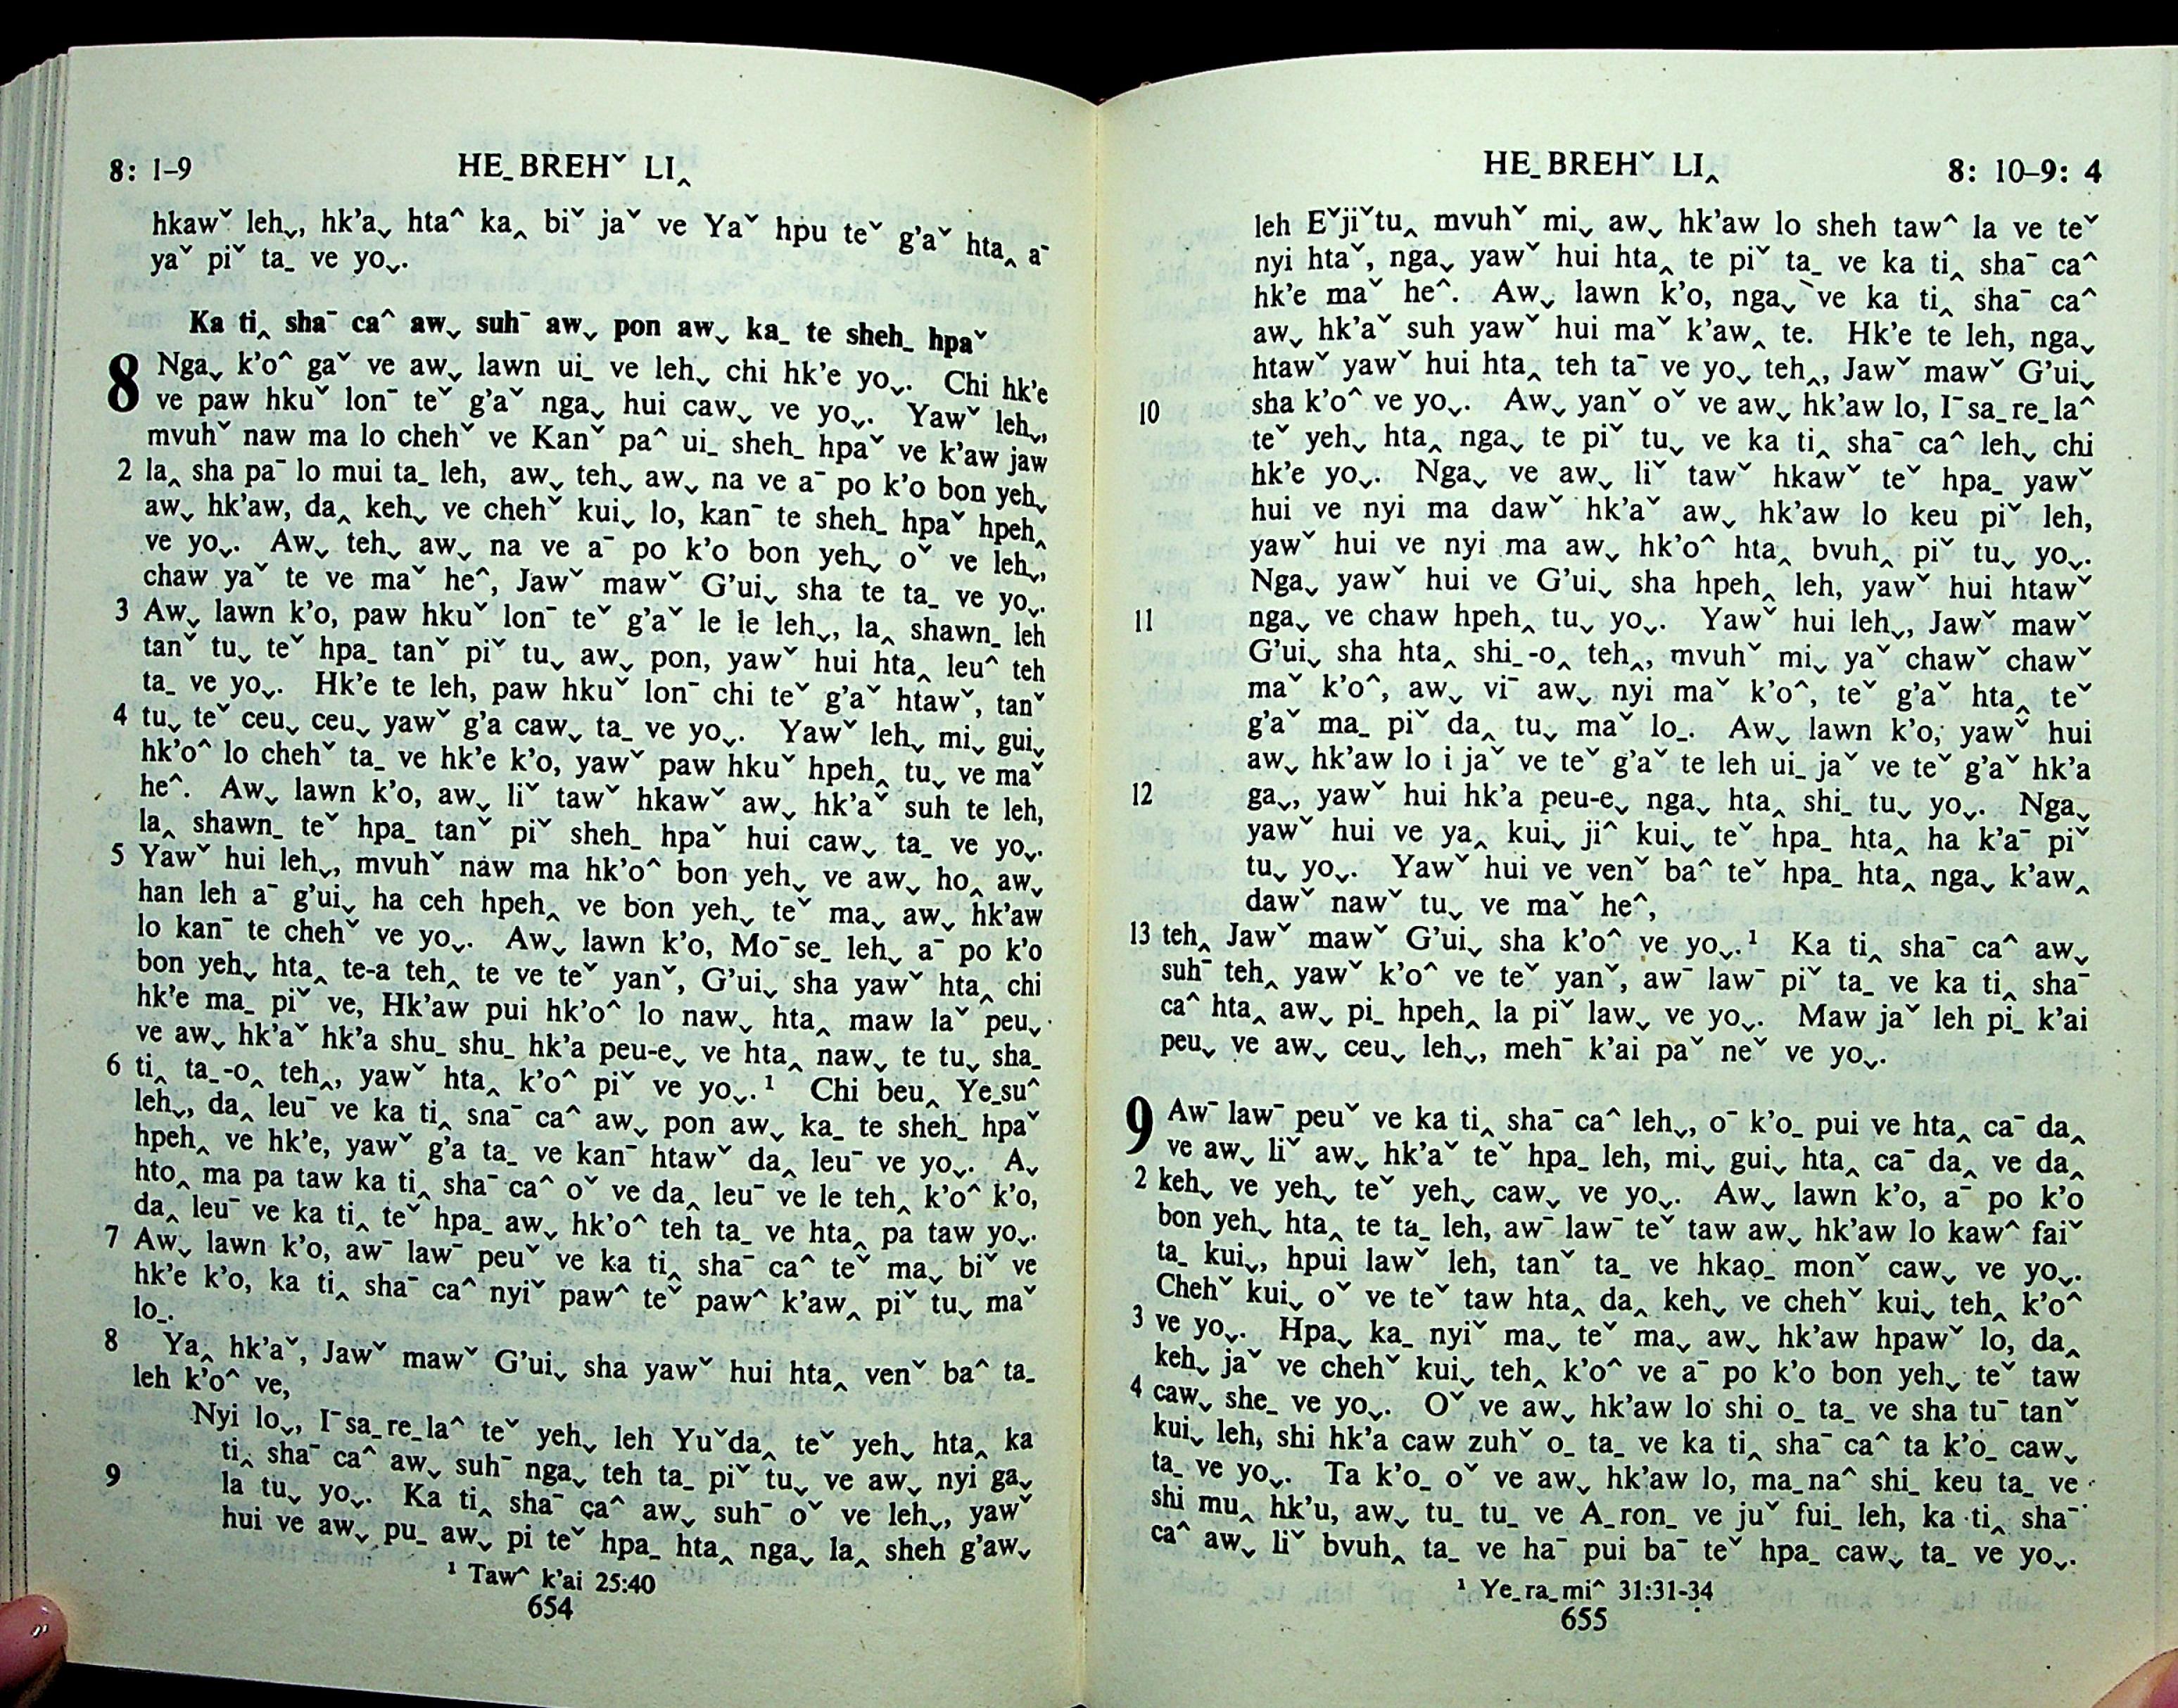 8: 1–9 HE_BREHˇ LI‸
hkawˇ lehˬ, hk'aˬ hta^ ka‸ biˇ jaˇ ve Yaˇ hpu teˇ g'aˇ hta‸ aˉ
yaˇ piˇ ta_ ve yoˬ.
Ka ti‸ shaˉ ca^ awˬ suhˉ awˬ pon awˬ ka_ te sheh_ hpaˇ
8 Ngaˬ k'o^ gaˇ ve awˬ lawn ui_ ve lehˬ chi hk'e yoˬ. Chi hk'e
ve paw hkuˇ lonˉ teˇ g'aˇ ngaˬ hui cawˬ ve yoˬ. Yawˇ lehˬ,
mvuhˇ naw ma lo chehˇ ve Kanˇ pa^ ui_ sheh_ hpaˇ ve k'aw jaw
2 la‸ sha paˉ lo mui ta_ leh, awˬ tehˬ awˬ na ve aˉ po k'o bon yehˬ
awˬ hk'aw, da‸ kehˬ ve chehˇ kuiˬ lo, kanˉ te sheh_ hpaˇ hpeh‸
ve yoˬ. Awˬ tehˬ awˬ na ve aˉ po k'o bon yehˬ oˇ ve lehˬ,
chaw yaˇ te ve maˇ he^, Jawˇ mawˇ G'uiˬ sha te ta_ ve yoˬ.
3 Awˬ lawn k'o, paw hkuˇ lonˉ teˇ g'aˇ le le lehˬ, la‸ shawn_ leh
tanˇ tuˬ teˇ hpa_ tanˇ piˇ tuˬ awˬ pon, yawˇ hui hta‸ leu^ teh
ta_ ve yoˬ. Hk'e te leh, paw hkuˇ lonˉ chi teˇ g'aˇ htawˇ, tanˇ
4 tuˬ teˇ ceuˬ ceuˬ yawˇ g'a cawˬ ta_ ve yoˬ. Yawˇ lehˬ miˬ guiˬ
hk'o^ lo chehˇ ta_ ve hk'e k'o, yawˇ paw hkuˇ hpeh‸ tuˬ ve maˇ
he^. Awˬ lawn k'o, awˬ liˇ tawˇ hkawˇ awˬ hk'aˇ suh te leh,
la‸ shawn_ teˇ hpa_ tanˇ piˇ sheh_ hpaˇ hui cawˬ ta_ ve yoˬ.
5 Yawˇ hui lehˬ, mvuhˇ naw ma hk'o^ bon yehˬ ve awˬ ho‸ awˬ
han leh aˉ g'uiˬ ha ceh hpeh‸ ve bon yehˬ teˇ maˬ awˬ hk'aw
lo kanˉ te chehˇ ve yoˬ. Awˬ lawn k'o, Moˉse_ lehˬ aˉ po k'o
bon yehˬ hta‸ te-a teh‸ te ve teˇ yanˇ, G'uiˬ sha yawˇ hta‸ chi
hk'e ma_ piˇ ve, Hk'aw pui hk'o^ lo nawˬ hta‸ maw laˇ peuˬ
ve awˬ hk'aˇ hk'a shu_ shu_ hk'a peu-eˬ ve hta‸ nawˬ te tuˬ sha_
6 ti‸ ta_-o‸ teh‸, yawˇ hta‸ k'o^ piˇ ve yoˬ.¹ Chi beu‸ Ye_su^
lehˬ, da‸ leuˉ ve ka ti‸ shaˉ ca^ awˬ pon awˬ ka_ te sheh_ hpaˇ
hpeh‸ ve hk'e, yawˇ g'a ta_ ve kanˉ htawˇ da‸ leuˉ ve yoˬ. Aˬ
hto‸ ma pa taw ka ti‸ shaˉ ca^ oˇ ve da‸ leuˉ ve le teh‸ k'o^ k'o,
da‸ leuˉ ve ka ti‸ teˇ hpa_ awˬ hk'o^ teh ta_ ve hta‸ pa taw yoˬ.
7 Awˬ lawn k'o, awˉ lawˉ peuˇ ve ka ti‸ shaˉ ca^ teˇ maˬ biˇ ve
hk'e k'o, ka ti‸ shaˉ ca^ nyiˇ paw^ teˇ paw^ k'aw‸ piˇ tuˬ maˇ
lo_.
8 Ya‸ hk'aˇ, Jawˇ mawˇ G'uiˬ sha yawˇ hui hta‸ venˇ ba^ ta_
leh k'o^ ve,
Nyi loˬ, Iˉsa_re_la^ teˇ yehˬ leh Yuˇda‸ teˇ yehˬ hta‸ ka
ti‸ shaˉ ca^ awˬ suhˉ ngaˬ teh ta_ piˇ tuˬ ve awˬ nyi gaˬ
9 la tuˬ yoˬ. Ka ti‸ shaˉ ca^ awˬ suhˉ oˇ ve lehˬ, yawˇ
hui ve awˬ pu_ awˬ pi teˇ hpa_ hta‸ ngaˬ la‸ sheh g'awˬ
¹ Taw^ k'ai 25:40
654
HE_BREHˇ LI‸ 8: 10–9: 4
leh Eˇjiˇtu‸ mvuhˇ miˬ awˬ hk'aw lo sheh taw^ la ve teˇ
nyi htaˇ, ngaˬ yawˇ hui hta‸ te piˇ ta_ ve ka ti‸ shaˉ ca^
hk'e maˇ he^. Awˬ lawn k'o, ngaˬ ve ka ti‸ shaˉ ca^
awˬ hk'aˇ suh yawˇ hui maˇ k'aw‸ te. Hk'e te leh, ngaˬ
htawˇ yawˇ hui hta‸ teh taˉ ve yoˬ teh‸, Jawˇ mawˇ G'uiˬ
10 sha k'o^ ve yoˬ. Awˬ yanˇ oˇ ve awˬ hk'aw lo, Iˉsa_re_la^
teˇ yehˬ hta‸ ngaˬ te piˇ tuˬ ve ka ti‸ shaˉ ca^ lehˬ chi
hk'e yoˬ. Ngaˬ ve awˬ liˇ tawˇ hkawˇ teˇ hpa_ yawˇ
hui ve nyi ma dawˇ hk'aˇ awˬ hk'aw lo keu piˇ leh,
yawˇ hui ve nyi ma awˬ hk'o^ hta‸ bvuh‸ piˇ tuˬ yoˬ.
Ngaˬ yawˇ hui ve G'uiˬ sha hpeh‸ leh, yawˇ hui htawˇ
11 ngaˬ ve chaw hpeh‸ tuˬ yoˬ. Yawˇ hui lehˬ, Jawˇ mawˇ
G'uiˬ sha hta‸ shi_-o‸ teh‸, mvuhˇ miˬ yaˇ chawˇ chawˇ
maˇ k'o^, awˬ viˉ awˬ nyi maˇ k'o^, teˇ g'aˇ hta‸ teˇ
g'aˇ ma_ piˇ da‸ tuˬ maˇ lo_. Awˬ lawn k'o, yawˇ hui
awˬ hk'aw lo i jaˇ ve teˇ g'aˇ te leh ui_ jaˇ ve teˇ g'aˇ hk'a
12 gaˬ, yawˇ hui hk'a peu-eˬ ngaˬ hta‸ shi_ tuˬ yoˬ. Ngaˬ
yawˇ hui ve ya‸ kuiˬ ji^ kuiˬ teˇ hpa_ hta‸ ha k'aˉ piˇ
tuˬ yoˬ. Yawˇ hui ve venˇ ba^ teˇ hpa_ hta‸ ngaˬ k'aw‸
dawˇ nawˇ tuˬ ve maˇ he^,
13 teh‸ Jawˇ mawˇ G'uiˬ sha k'o^ ve yoˬ.¹ Ka ti‸ shaˉ ca^ awˬ
suhˉ teh‸ yawˇ k'o^ ve teˇ yanˇ, awˉ lawˉ piˇ ta_ ve ka ti‸ shaˉ
ca^ hta‸ awˬ pi_ hpeh‸ la piˇ lawˬ ve yoˬ. Maw jaˇ leh pi_ k'ai
peuˬ ve awˬ ceuˬ lehˬ, mehˉ k'ai paˇ neˇ ve yoˬ.
9 Awˉ lawˉ peuˇ ve ka ti‸ shaˉ ca^ lehˬ, oˉ k'o_ pui ve hta‸ caˉ da‸
ve awˬ liˇ awˬ hk'aˇ teˇ hpa_ leh, miˬ guiˬ hta‸ caˉ da‸ ve da‸
2 kehˬ ve yehˬ teˇ yehˬ cawˬ ve yoˬ. Awˬ lawn k'o, aˉ po k'o
bon yehˬ hta‸ te ta_ leh, awˉ lawˉ teˇ taw awˬ hk'aw lo kaw^ faiˇ
ta_ kuiˬ, hpui lawˇ leh, tanˇ ta_ ve hkao_ monˇ cawˬ ve yoˬ.
Chehˇ kuiˬ oˇ ve teˇ taw hta‸ da‸ kehˬ ve chehˇ kuiˬ teh‸ k'o^
3 ve yoˬ. Hpaˬ ka_ nyiˇ maˬ teˇ maˬ awˬ hk'aw hpawˇ lo, da‸
kehˬ jaˇ ve chehˇ kuiˬ teh‸ k'o^ ve aˉ po k'o bon yehˬ teˇ taw
4 cawˬ she_ ve yoˬ. Oˇ ve awˬ hk'aw lo shi o_ ta_ ve sha tuˉ tanˇ
kuiˬ leh, shi hk'a caw zuhˇ o_ ta_ ve ka ti‸ shaˉ ca^ ta k'o_ cawˬ
ta_ ve yoˬ. Ta k'o_ oˇ ve awˬ hk'aw lo, ma_na^ shi_ keu ta_ ve
shi mu‸ hk'u, awˬ tu_ tu_ ve A_ron_ ve juˇ fui_ leh, ka ti‸ shaˉ
ca^ awˬ liˇ bvuh‸ ta_ ve haˉ pui baˉ teˇ hpa_ cawˬ ta_ ve yoˬ.
¹ Ye_ra_mi^ 31:31-34
655